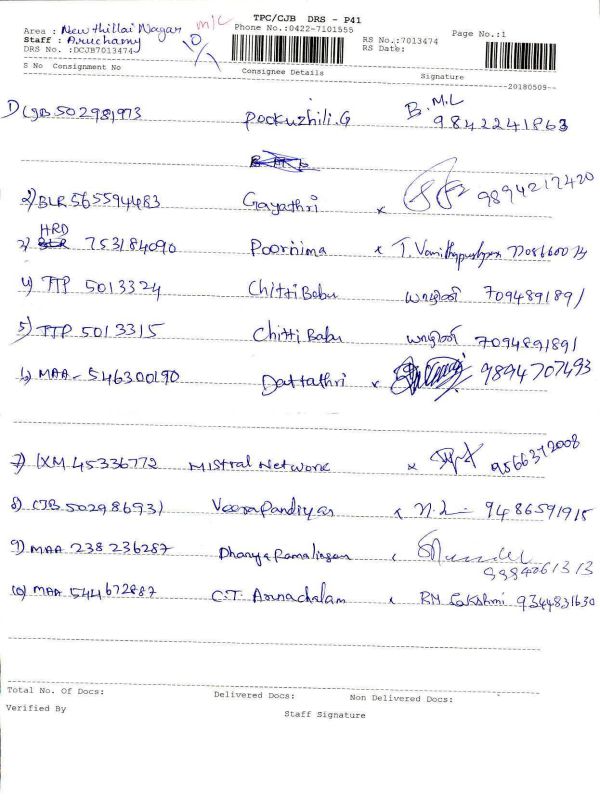 TPC/CJB DRS - P41
Area : New thillai Nagar M/C
Phone No.:0422-7101555
Staff : Aruchamy
RS No.:7013474
Page No.:1
DRS No. :DCJB7013474
RS Date:
S No Consignment No Consignee Details Signature
20180509
1) CJB 502981973 Pockuzhili.G B.M.L 9842241863
2) BLR 565594483 Gayathri x 9894217420
3) HRD 753184090 Poornima x
4) TTP 5013324 Chitti Babu யாழினி 709489189/
5) TTP 5013315 Chitti Babu யாழினி 7094891891
6) MAA - 546300190 Dattathri x 9894707493
7) IXM 45336772 Mistral Network x 9566372008
8) CJB 502986931 Veerapandiyan x 9486591915
9) MAA 238236287 Dhanya Ramalingam x
10) MAA 544672887 C.T. Arunachalam x RM Lakshmi 9344831630
Total No. Of Docs: Delivered Docs: Non Delivered Docs:
Verified By Staff Signature